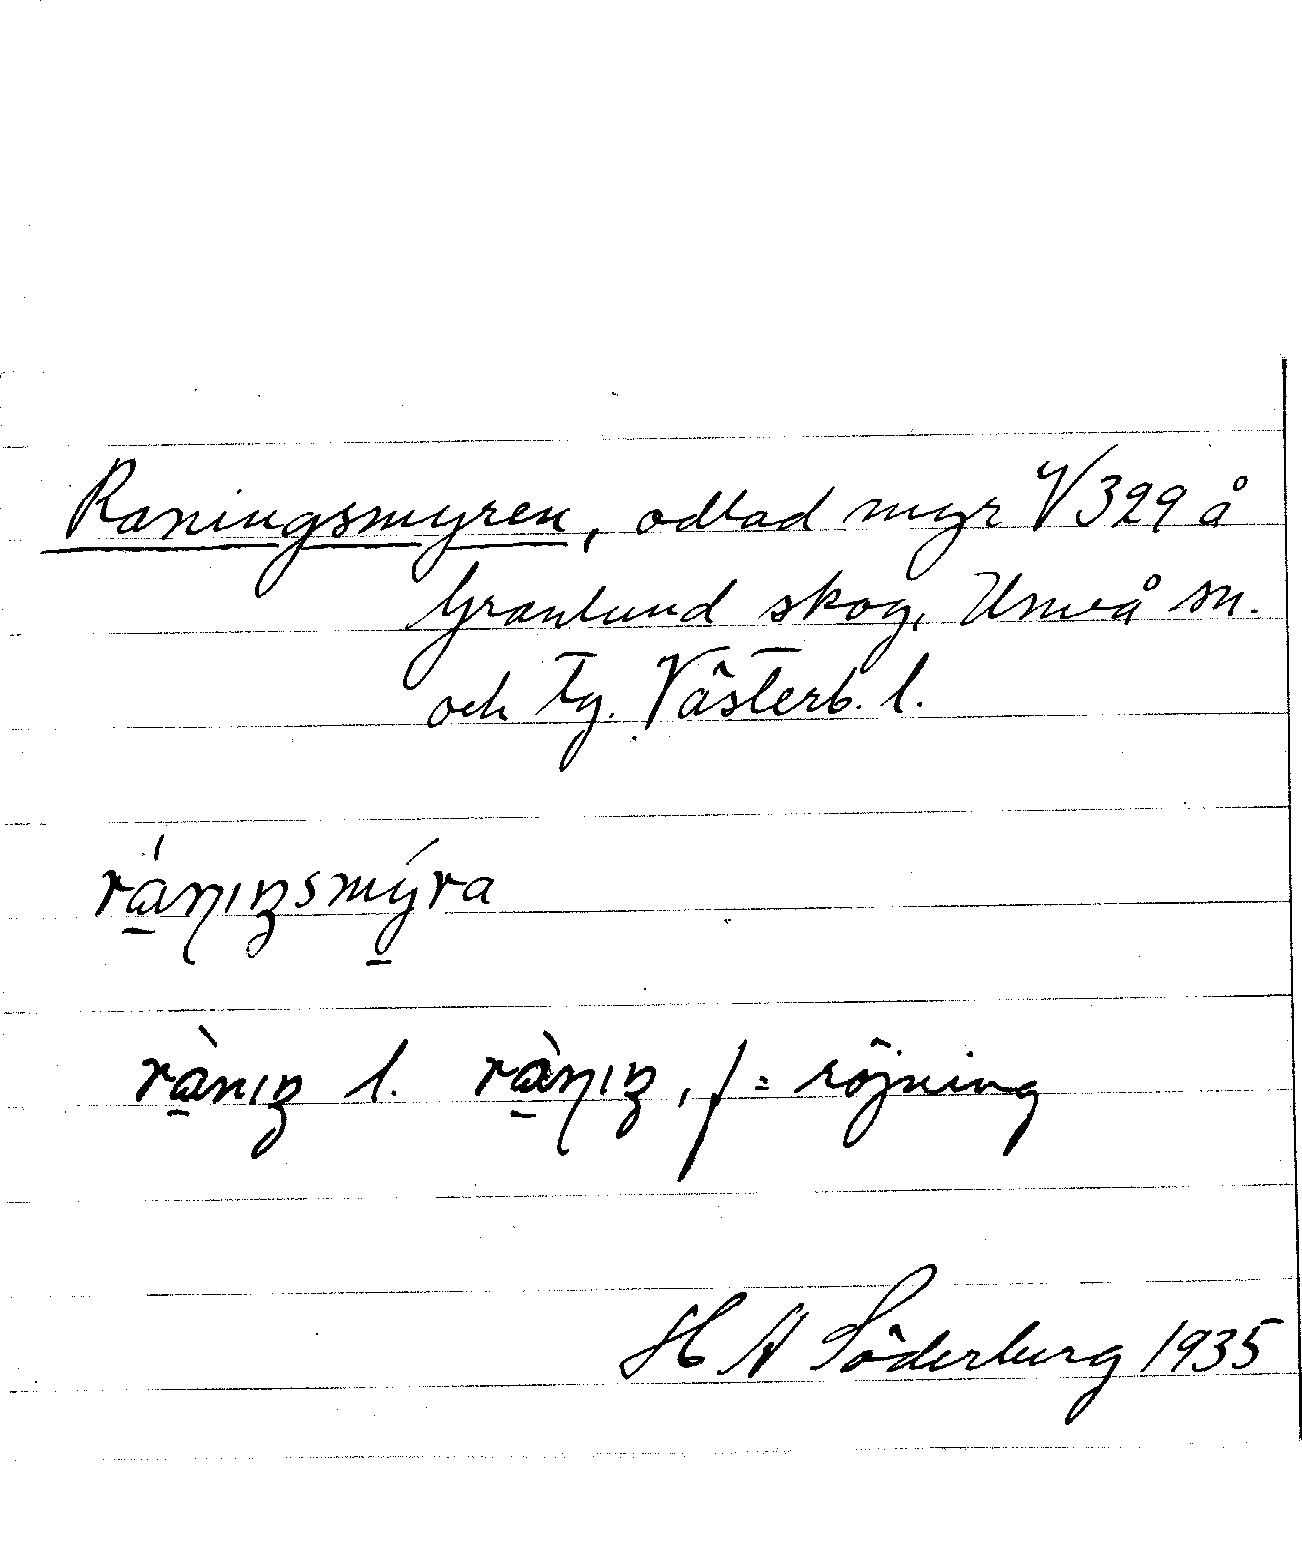 Raningsmyren, odlad myr V 329 å
Granlund skog, Umeå sn.
och tg. Västerb. l.
rá̱ɳıŋsmý̱ra
rà̱nıŋ l. rà̱ɳıŋ, f = röjning
H A Söderberg 1935